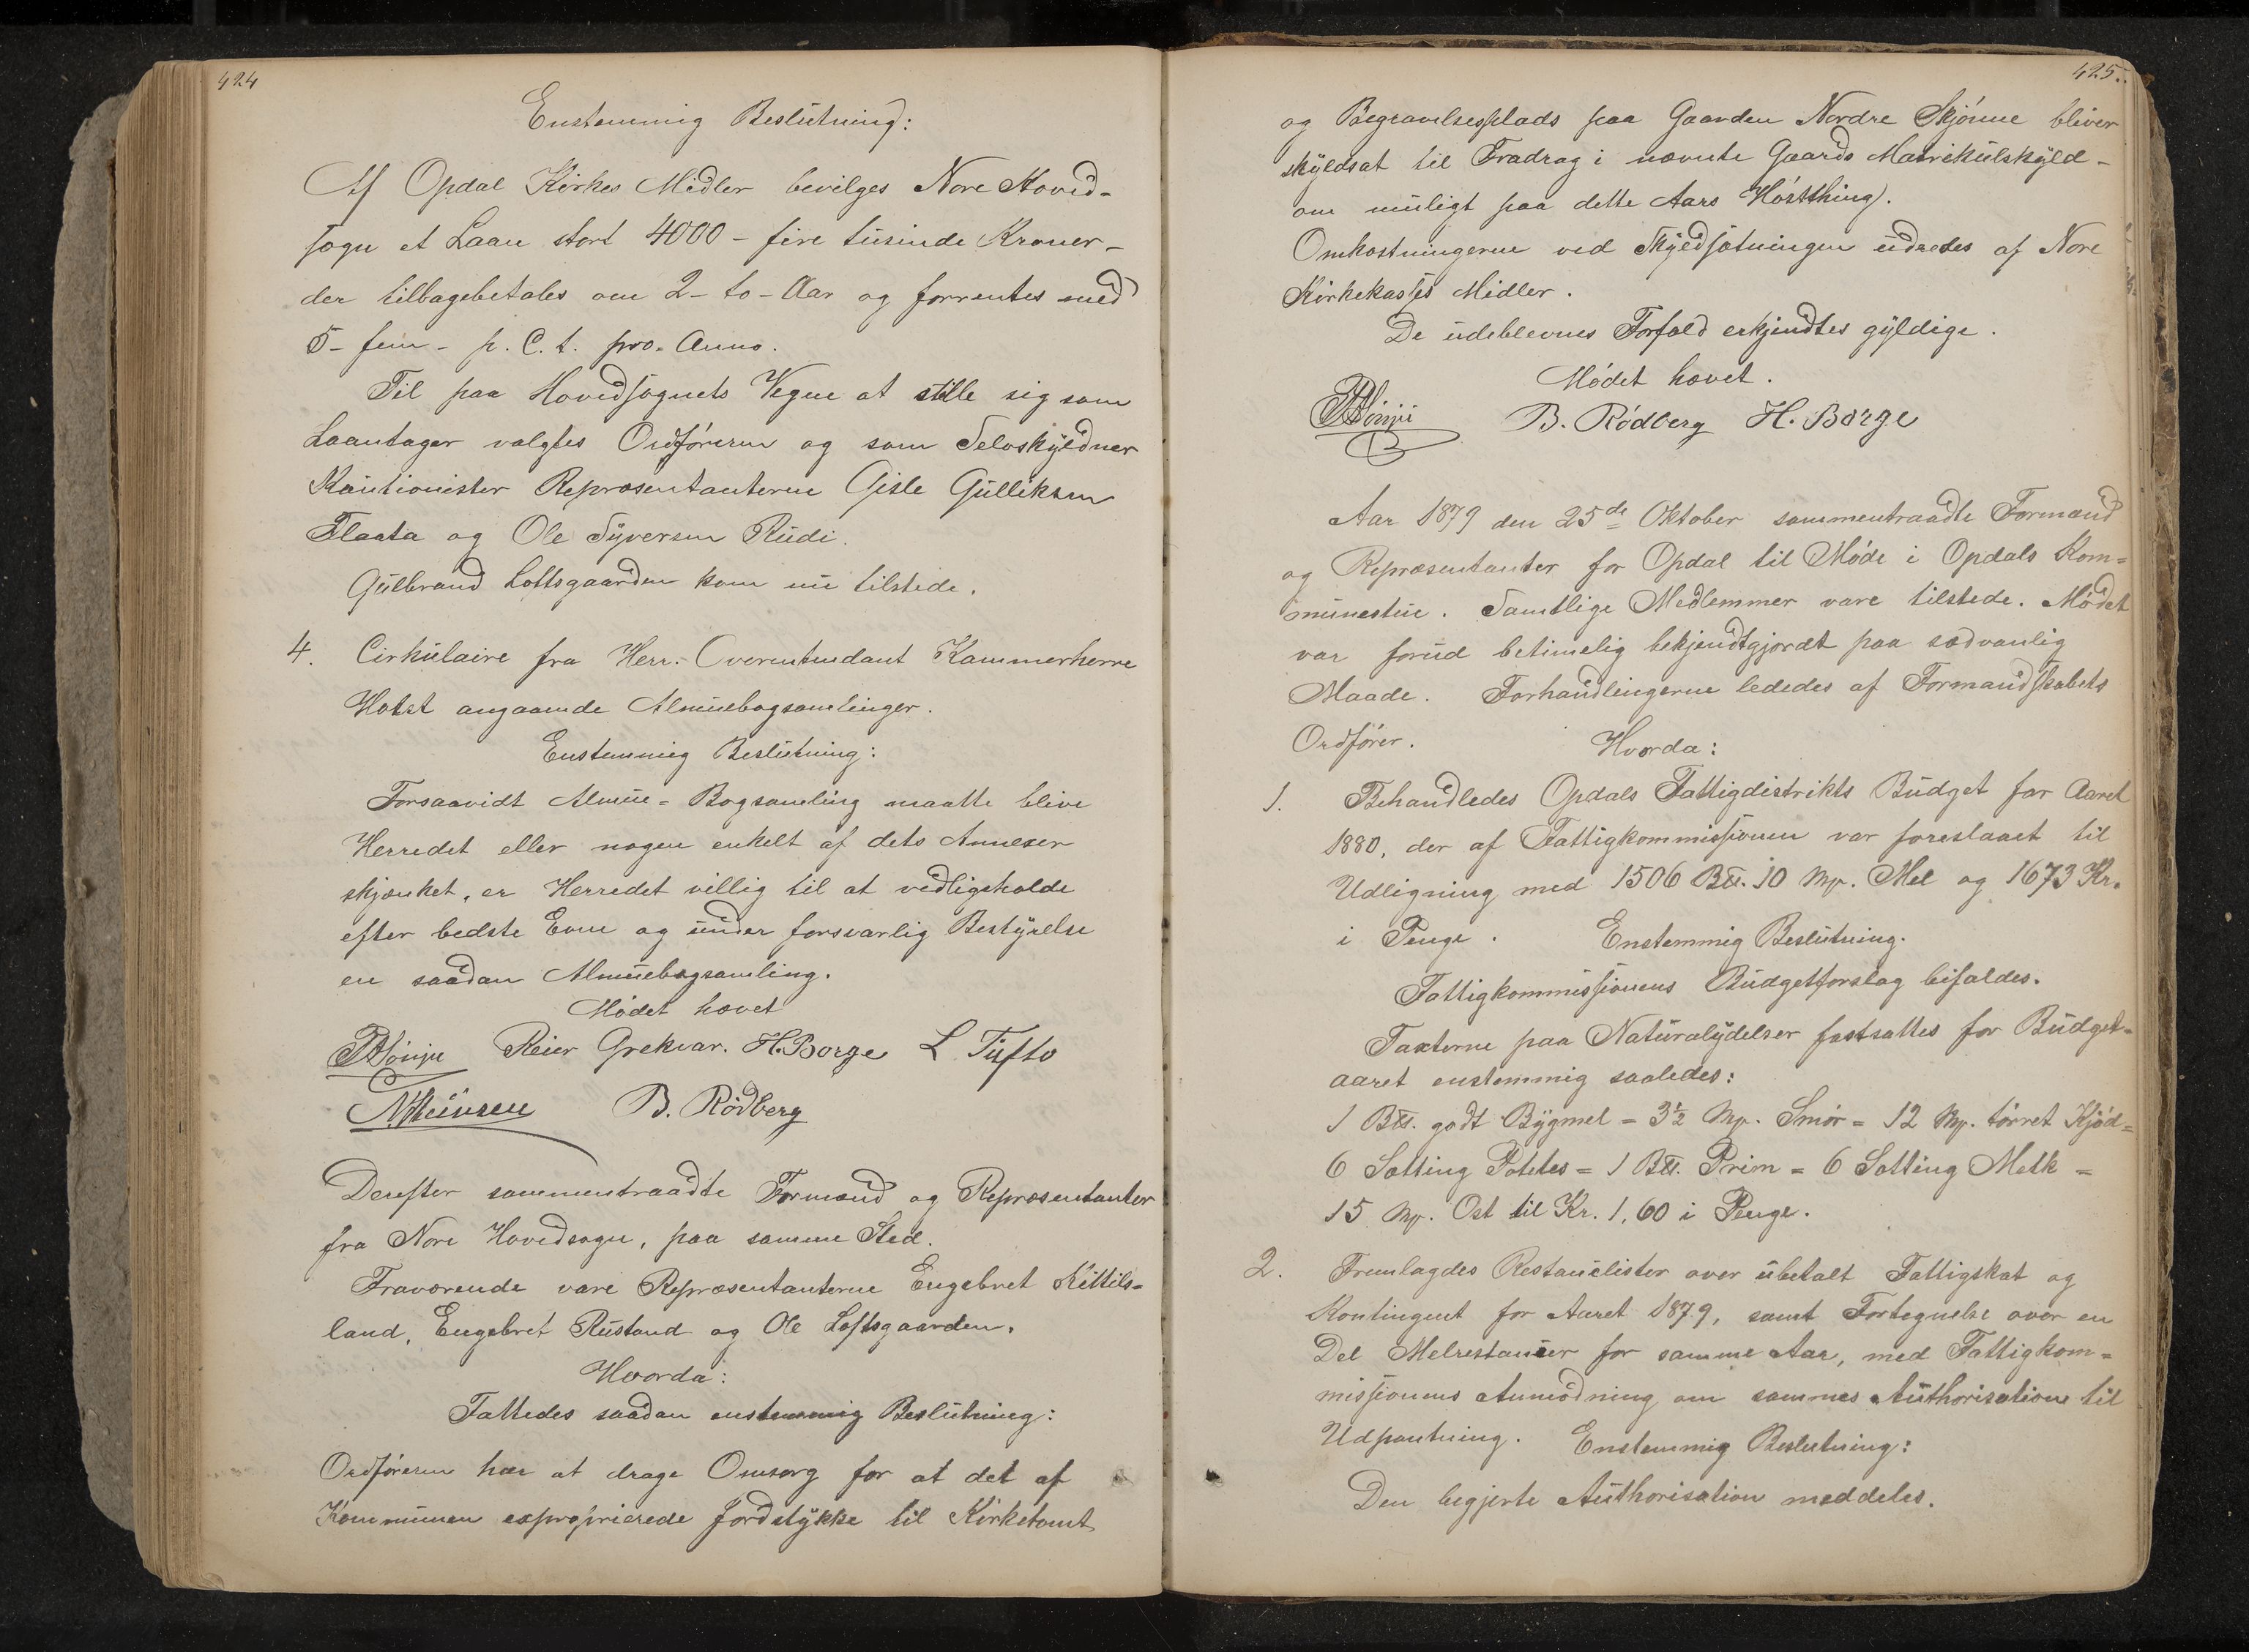 424
Enstemmig Beslutning:
Af Opdal Kirkes Midler bevilges Nore Hoved-
sogn et Laan stort 4000 - fire tusinde Kroner -
der tilbagebetales om 2 - to - Aar og forrentes med
5 - fem - p. C. t. pro. Anno.
Til paa Hovedsognets Vegne at stille sig som
Laantager valgtes Ordføreren og som Selvskyldner
Kautionister Repræsentanterne Gisle Gulliksen
Flaata og Ole Syversen Rudi.
Gulbrand Loftsgaarden kom nu tilstede.
4. Cirkulaire fra Herr. Overintendant Kammerherre
Holst angaaende Almuebogsamlinger.
Enstemmig Beslutning:
Forsaavidt Almue-Bogsamling maatte blive
Herredet eller nogen enkelt af dets Annexer
skjænket, er Herredet villig til at vedligeholde
efter bedste Evne og under forsvarlig Bestyrelse
en saadan Almuebogsamling.
Mødet hævet
Reier Grekvar. H. Borge L Tufto
B. Rødberg
Derefter sammentraadte Formænd og Repræsentanter
fra Nore Hovedsogn, paa samme Sted.
Fraværende vare Repræsentanterne Engebret Kittils-
land, Engebret Rustand og Ole Loftsgaarden.
Hvorda:
Fattedes saadan enstemmig Beslutning:
Ordføreren har at drage Omsorg for at det af
Kommunen exproprierede Jordstykke til Kirketomt
425.
og Begravelsesplads paa Gaarden Nordre Skjønne bliver
skyldsat til Fradrag i nævnte Gaards Matrikulskyld -
om muligt paa dette Aars Høstthing.
Omkostningerne ved Skyldsætningen udredes af Nore
Kirkekasses Midler.
De udeblevnes Forfald erkjendtes gyldige.
Mødet hævet.
B. Rødberg H. Borge
Aar 1879 den 25de Oktober sammentraadte Formænd
og Repræsentanter for Opdal til Møde i Opdals Kom=
munestue. Samtlige Medlemmer vare tilstede. Mødet
var forud betimelig bekjendtgjordt paa sædvanlig
Maade. Forhandlingerne lededes af Formandskabets
Ordfører. Hvorda:
1. Behandledes Opdals Fattigdistrikts Budget for Aaret
1880, der af Fattigkommissionen var foreslaaet til
Udligning med 1506 B℔. 10 Mp. Mel og 1673 Kr.
i Penge. Enstemmig Beslutning.
Fattigkommissionens Budgetforslag bifaldes.
Taxterne paa Naturalydelser fastsattes for Budget-
aaret enstemmig saaledes:
1 B℔. godt Bygmel = 3½ Mp. Smør = 12 Mp. tørret Kjød =
6 Sætting Potetes = 1 B℔. Prim = 6 Sætting Melk =
15 Mp. Ost til Kr. 1,60 i Penge.
2. Fremlagdes Restancelister over ubetalt Fattigskat og
Kontingent for Aaret 1879, samt Fortegnelse over en
Del Melrestancer for samme Aar, med Fattigkom=
missionens Anmodning om sammes Authorisation til
Udpantning. Enstemmig Beslutning:
Den begjerte Authorisation meddeles.